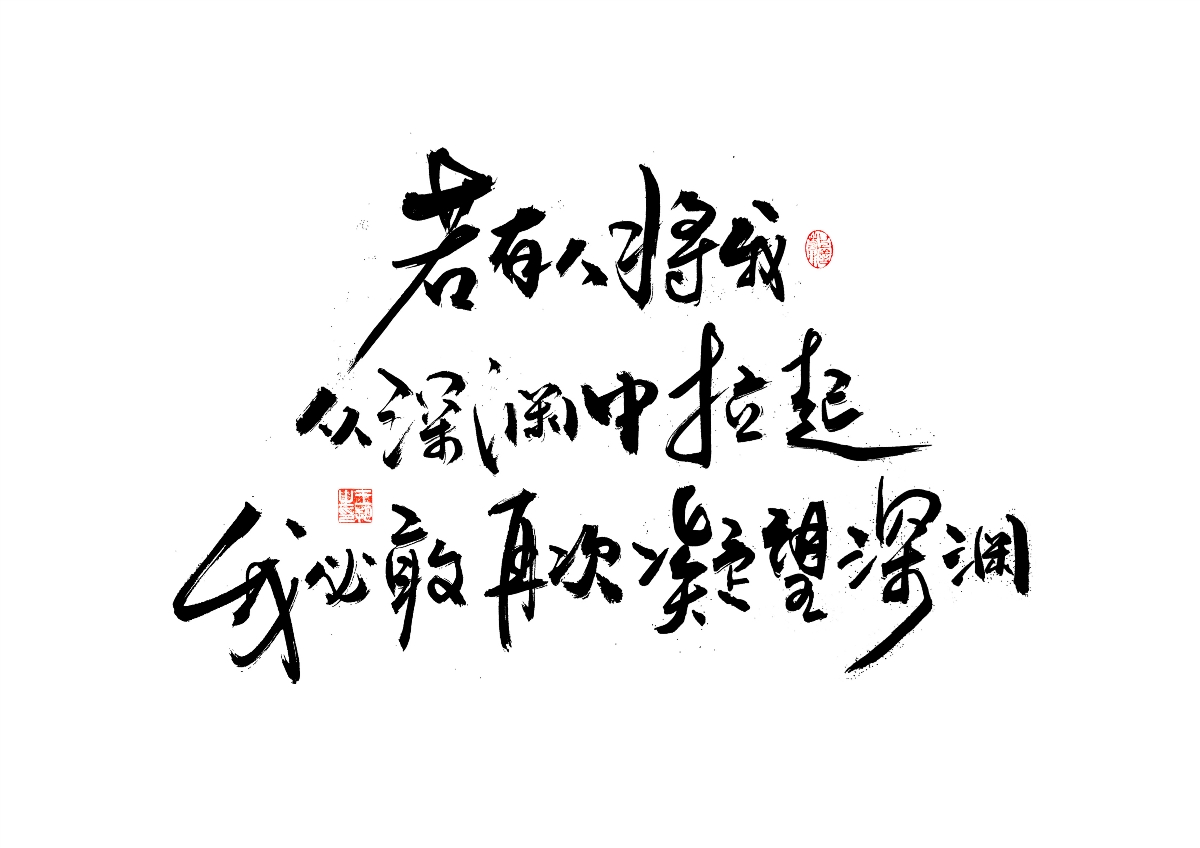 若有人将我
从深澜中拉起
我必敢再次凝望深澜